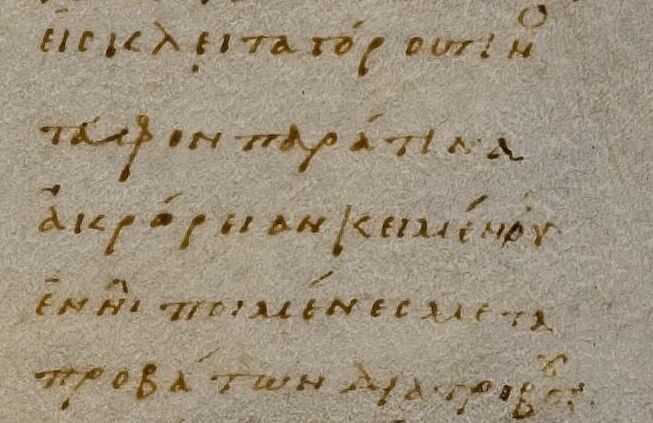 εἰς κλειταγόρου τινο
τάφον παρά τινα
ἀκρόρειαν κειμένου
ἐν ἧι ποιμένες μετα
προβάτων διατριβου